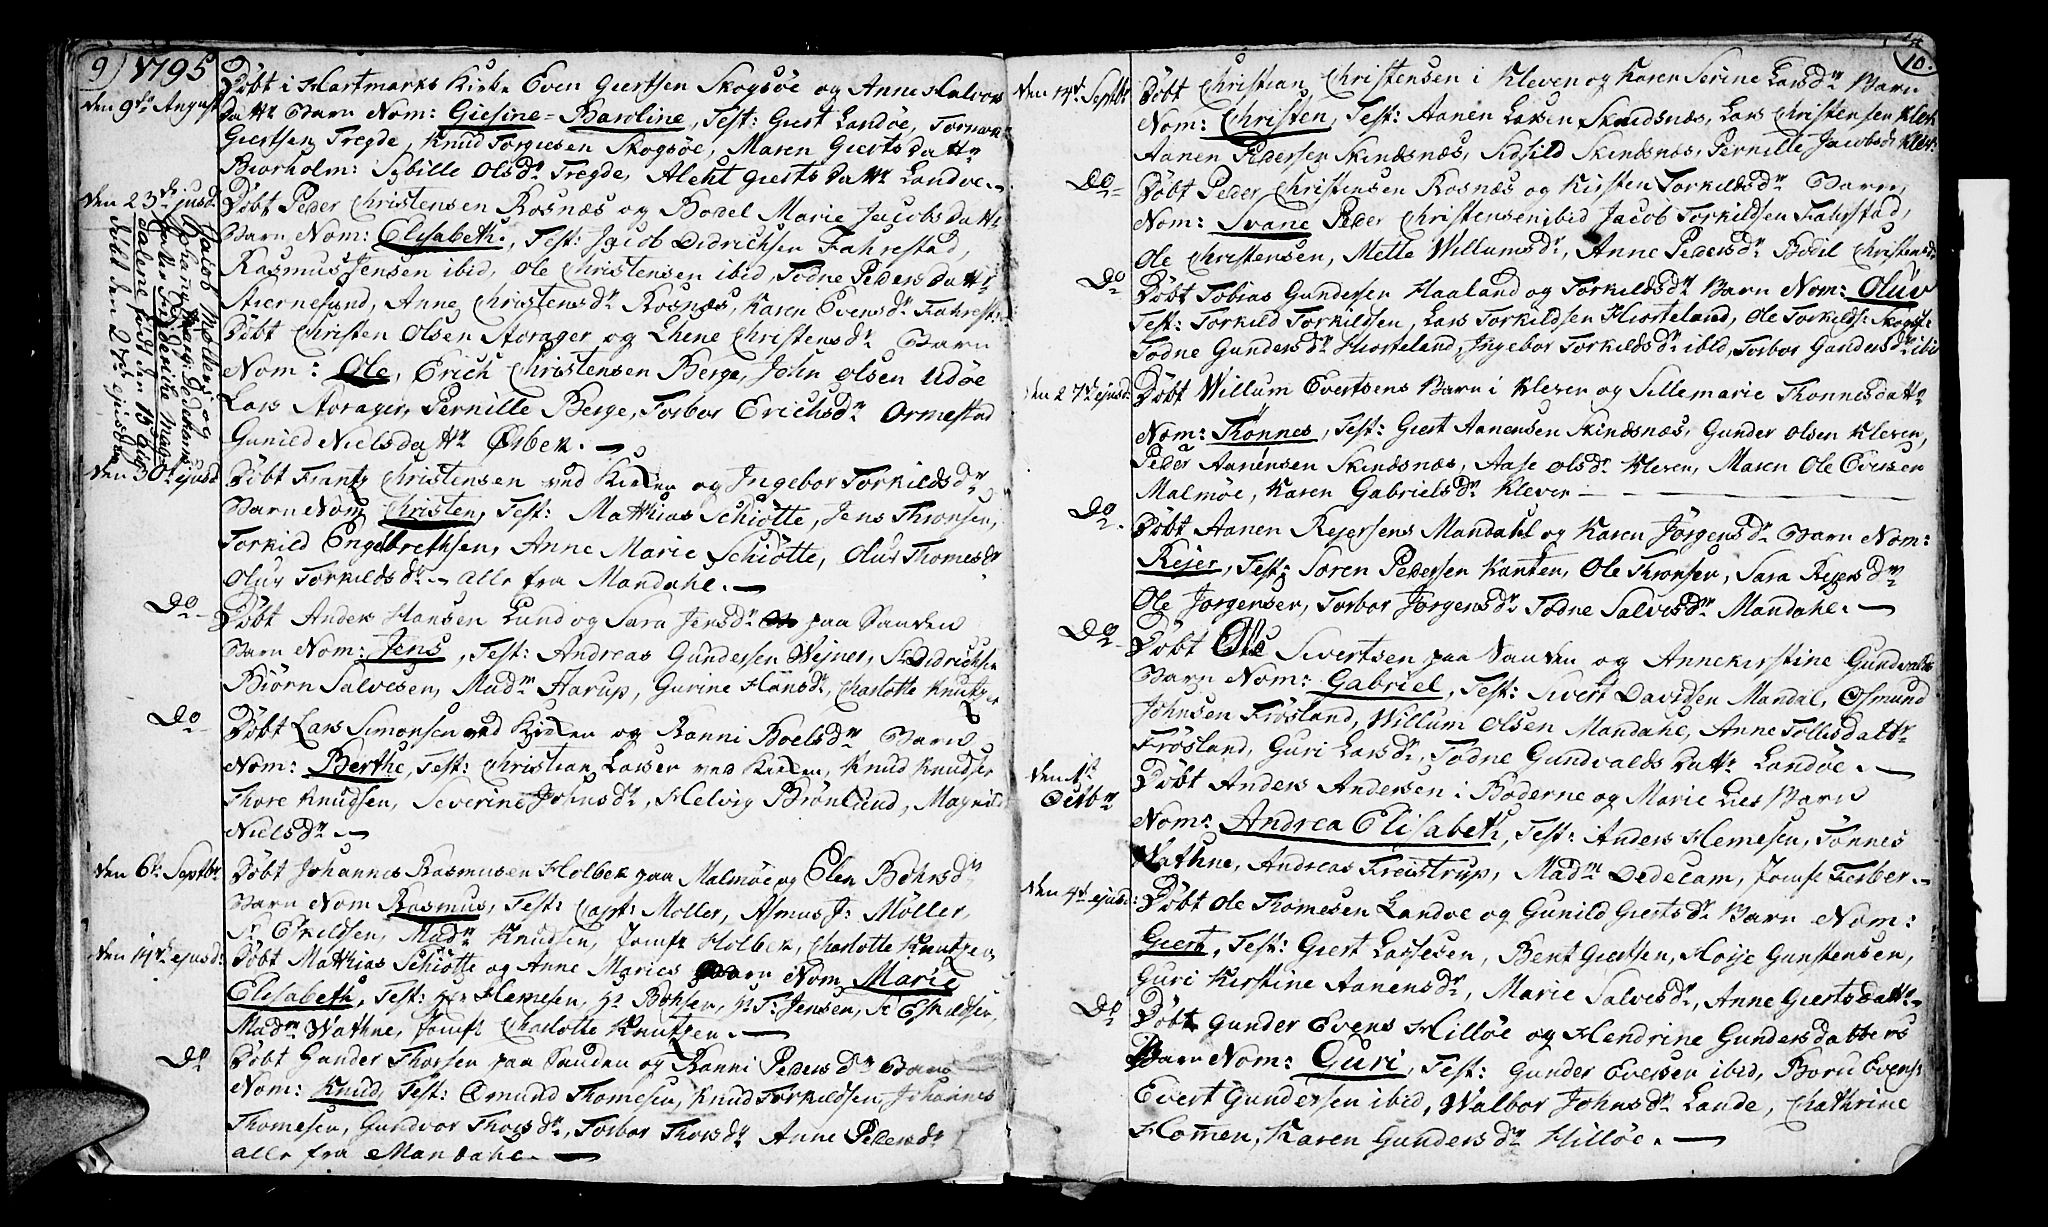 9) 1795
den 9de August
Döbt i Hartmarks Kirke Even Giertsen Skogsöe og Anne Halvors
Datter Barn Nom: Giesine=Baroline, Test: Giert Landöe,
Giertsen Tregde, Knud Torgiesen Skogsöe, Maren Giertsdattr
Biørholm: Sybille Olsdr Tregde, Aleht Giertsdattr Landöe.
den 23de ejusd:
Döbt Peder Christensen Rosnæs og Bodel Marie Jacobsdattr
Barn Nom: Elisabeth., Test: Jacob Didrichsen Fahrestad,
Rasmus Jensen ibid, Ole Christensen ibid, Todne Pedersdattr
Stiernesund, Anne Christensdr Rosnæs, Karen Evensdr Fahrest:
Döbt Christen Olsen Storager og Lhene Christensdr Barn
Nom: Ole, Erich Christensen Berge, John Olsen Udöe
Lars Storager, Pernille Berge, Torbor Erichsdr Ormestad
Gunild Nielsdattr Örbek.
Jacob Møllers og
Marg: Pedersens
Barn Friderike Mag-
dalene föd den 19 Aug
döbt den 27de ejusdem
den 30te ejusd
Döbt Frantz Christensen ved Kielen og Ingebor Torkildsdr
Barn Nom Christen, Test: Matthias Schiötte, Jens Thronsen,
Torkild Engelbrethsen, Anne Marie Schiötte, Oluv Thomesdr
Oluv Torkildsdr alle fra Mandahl.
Do
Döbt Anders Hansen Lund og Sara Jensdr paa Sanden
Barn Nom: Jens, Test: Andreas Gundersen Wejner, Didrichsen
Biörn Salvesen, Madm Aarup, Gurine Hansdr, Charlotte Knutzen
Do
Döbt Lars Simonsen ved Kielen og Ranni Boelsdr Barn
Nom: Berthe, Test: Christian Larsen ved Kielen, Knud Knudsen
Thore Knudsen, Severine Johnsdr, Helvig Brönlund, Magnild
Nielsdr
den 6te Septbr
Döbt Johannes Rasmusen Holbek paa Malmöe og Elen Bohrsdr
Barn Nom Rasmus, Test: Capt: Moller, Asmus J: Möller,
Eskildsen, Madm Knudsen, Jomfr Holbek, Charlotte Knutzen
den 14de ejusd:
Döbt Matthias Schiötte og Anne Maries Barn Nom Marie
Elisabeth, Test: Hemesen, Hr Bohsen, Jensen, Eskildsen,
Madm Wathne, Jomfr Charlotte Knutzen.
Do
Döbt Gunder Thorsen paa Sanden og Ranni Pedersdr Barn
Nom: Knud, Test: Omund Thomesen, Knud Torkildsen, Johannes
Thomesen, Gundvor Thorsdr, Torbor Thorsdr Anne Pedersdr
alle fra Mandahl.
10.
den 14de Septbr
Döbt Christian Christensen i Kleven og Karen Serine Larsdr Barn
Nom: Christen, Test: Aanen Larsen Skindsnæs, Lars Christensen Klev:
Aanen Pedersen Skindsnæs, Sidsild Skindsnæs, Pernille Jacobsdr Klev:
Do
Döbt Peder Christensen Rosnæs og Kirsten Torkildsdr Barn,
Nom: Svane Peder Christensen ibid Jacob Torkildsen Fahrstad,
Ole Christensen, Mette Willumsdr, Anne Pedersdr Bodil Christensdr
Do
Döbt Tobias Gundersen Haaland og Torkildsdr Barn Nom: Oluv
Test: Torkild Torkildsen, Lars Torkildsen Hiorteland, Ole Torkilds: Skogs:
Todne Gundersdr Hiorteland, Ingebor Torkildsdr ibid, Torbor Gundersdr ibid
den 27de ejusd:
Döbt Willum Evertsens Barn i Kleven og Sillemarie Thonnesdattr
Nom: Thönnes, Test: Giert Aanensen Skindsnæs, Gunder Olsen Kleven,
Peder Aanensen Skindsnæs, Aase Olsdr Kleven, Maren Ole Eversen
Malmöe, Karen Gabrielsdr Kleven
Do
Döbt Aanen Rejersens Mandahl og Karen Jörgensdr Barn Nom:
Rejer, Test: Soren Pedersen Kanten, Ole Thronsen, Sara Rejersdr
Ole Jorgensen, Torbor Jorgensdr Todne Salvesdr Mandahl.
Do
Döbt Ole Sivertsen paa Sanden og Annekirstine Gundvalds
Barn Nom: Gabriel, Test: Sivert Davidsen Mandal, Osmund
Johnsen Frösland, Willum Olsen Mandahl, Anne Tollisdattr
Frösland, Guri Larsdr, Todne Gundvaldsdattr Landöe.
den 1st
Octbr
Döbt Anders Andersen i Boderne og Marie Lies Barn
Nom: Andrea Elisabeth, Test: Anders Hemesen, Tönnes
Wathne, Andreas Freistrup, Madm Dedecam, Jomfr Ferber.
den 4de ejusd:
Döbt Ole Thomesen Landöe og Gunild Giertsdr Barn Nom:
Giert, Test: Giert Lassesen, Bent Giertsen, Hoije Gunstensen,
Guri Kirstine Aanensdr, Marie Salvesdr, Anne Giertsdattr
Do
Döbt Gunder Evens Hillöe og Hendrine Gundersdatters
Barn Nom: Guri, Test: Gunder Eversen ibid, Boru Evens:
Evert Gundersen ibid, Walbor Johnsdr Lande, Chathrine
Homen, Karen Gundersdr Hillöe.